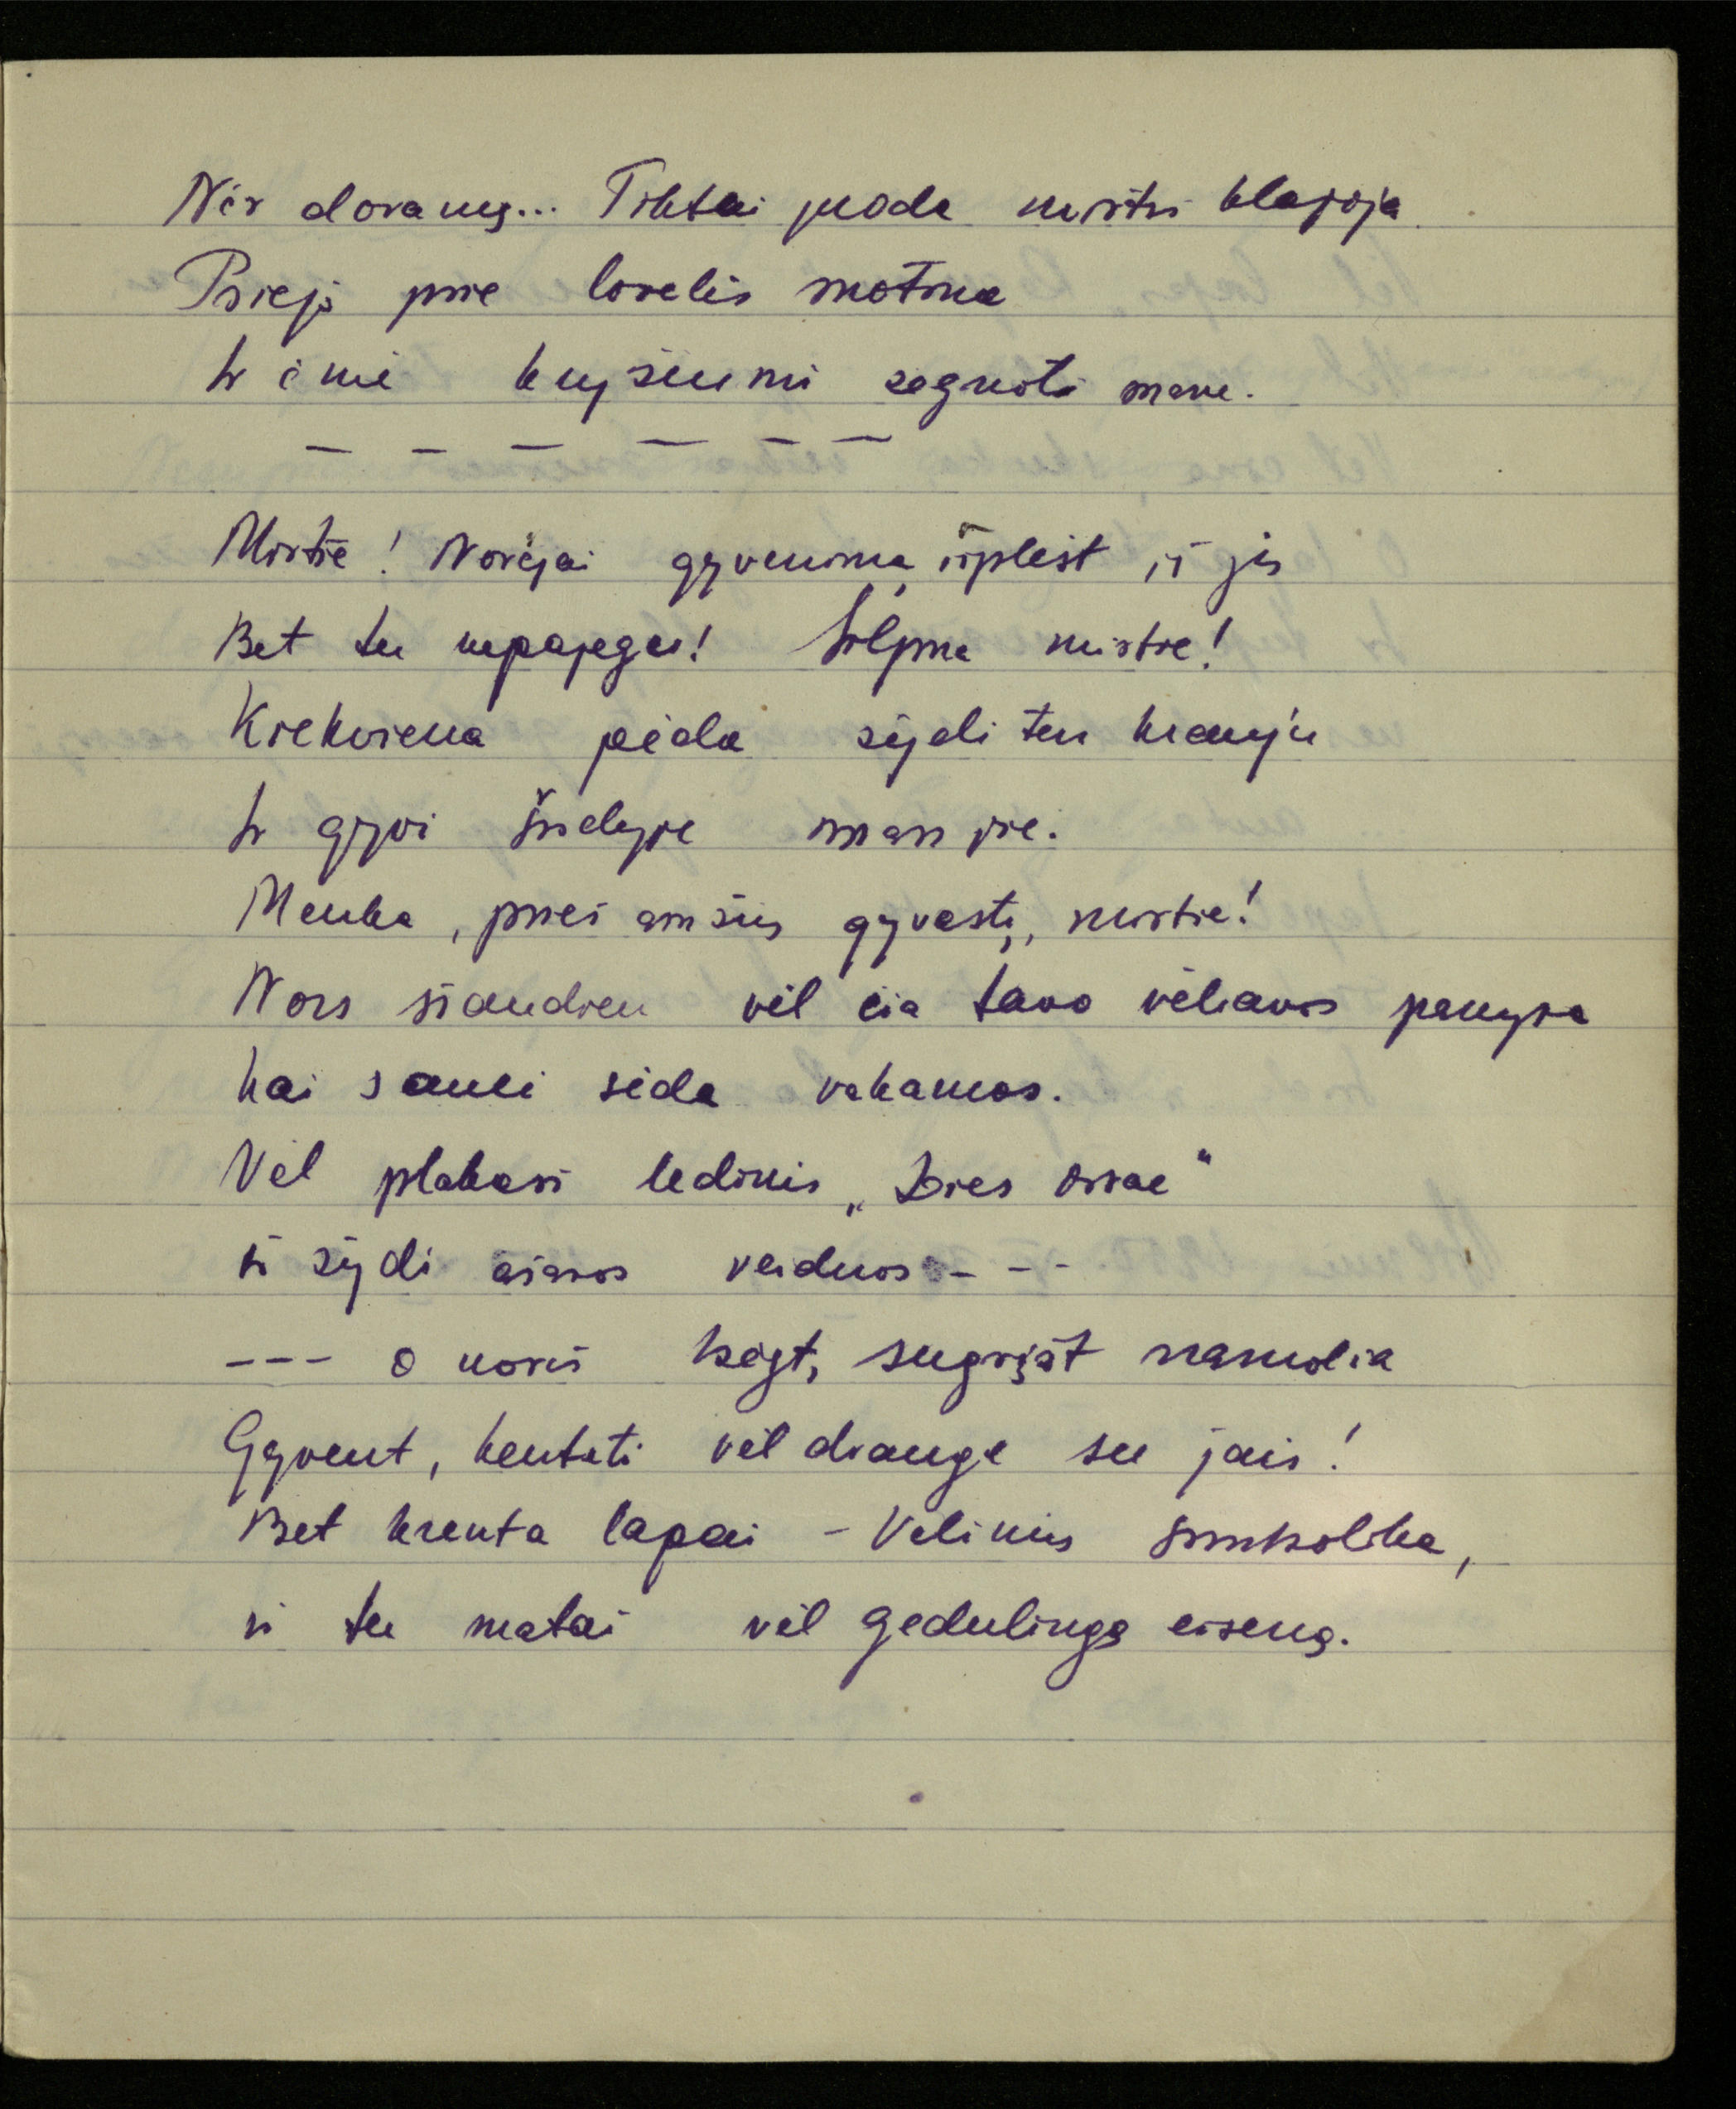 Nėr dovanų... Tiktai juoda mirtis klajoja
Priėjo prie lovelės motina
Ir ėmė kryžiumi žegnoti mane.
— — — — — —
Mirtie! Norėjai gyvenimą išplėst iš jų
Bet tu nepajėgei! Silpna mirtie!
Kiekviena pėda žydi ten krauju
Ir gyvi širdyje man jie.
Menka, prieš amžių gyvastį, mirtie!
Nors šiandien vėl čia tavo vėliavos
kai saulė sėda vakaruos.
Vėl plakasi ledinis „Dies irae"
ir žydi ašaros veiduos - - -
--- o noris kėgt, sugrįšt namolia
Gyvent, kentėti vėl drauge su jais!
Bet krenta lapai - Vėlinių simbolika,
ir tu matai vėl gedulingą eiseną.